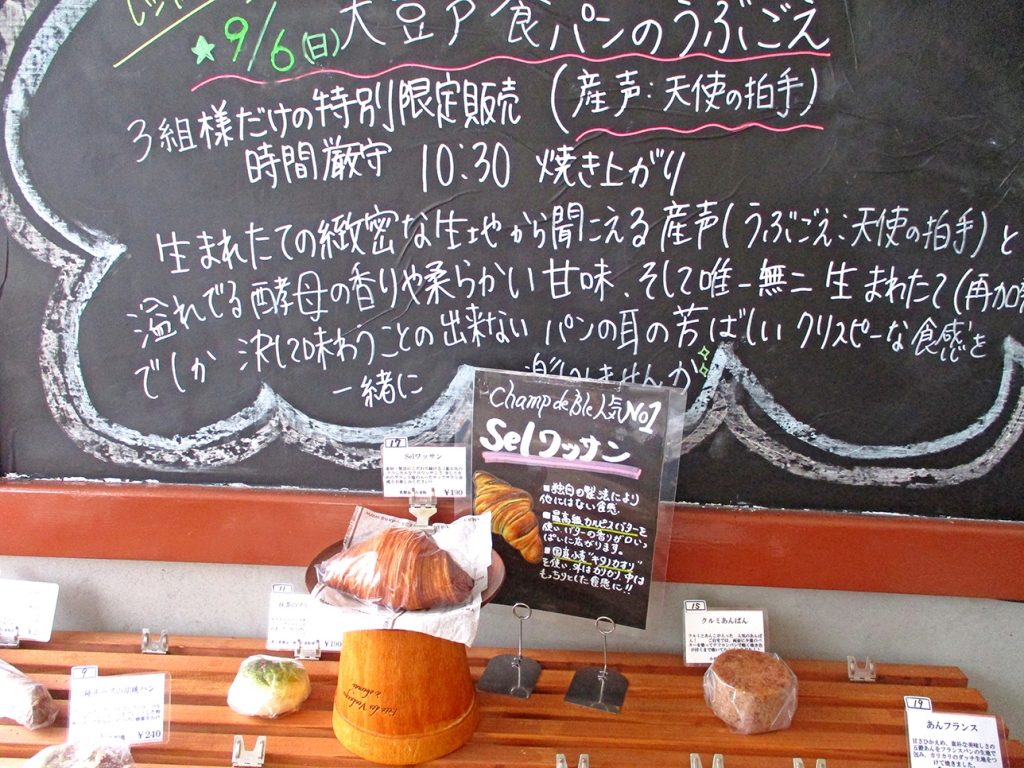 ★9/6(日)大豆戸食パンのうぶごえ
3組様だけの特別限定販売(産声:天使の拍手)
時間厳守 10:30 焼き上がり
生まれたての緻密な生地から聞こえる産声(うぶごえ:天使の拍手)と
溢れでる酵母の香りや柔らかい甘味、そして唯一無二生まれたて(再加
でしか 決して味わうことの出来ない パンの耳の芳ばしい クリスピーな食感を
一緒に
ませんか
Champ de Ble 人気No1
Selワッサン
■独自の製法により
他にはない食感
■最高級カルピスバターを
使いバターの香りが口いっ
ぱいに広がります。
■国産小麦"キタノカオリ"
を使い、外はカリカリ、中は
もっちりとした食感に!!
17
Selワッサン
¥190
11
¥190
9
¥240
15
クルミあんぱん
19
あんフランス
甘さひかえめ、素朴な美味しさの
五穀あんをフランスパンの生地で
包み、カリカリのダッチ生地を
つけて焼きました。